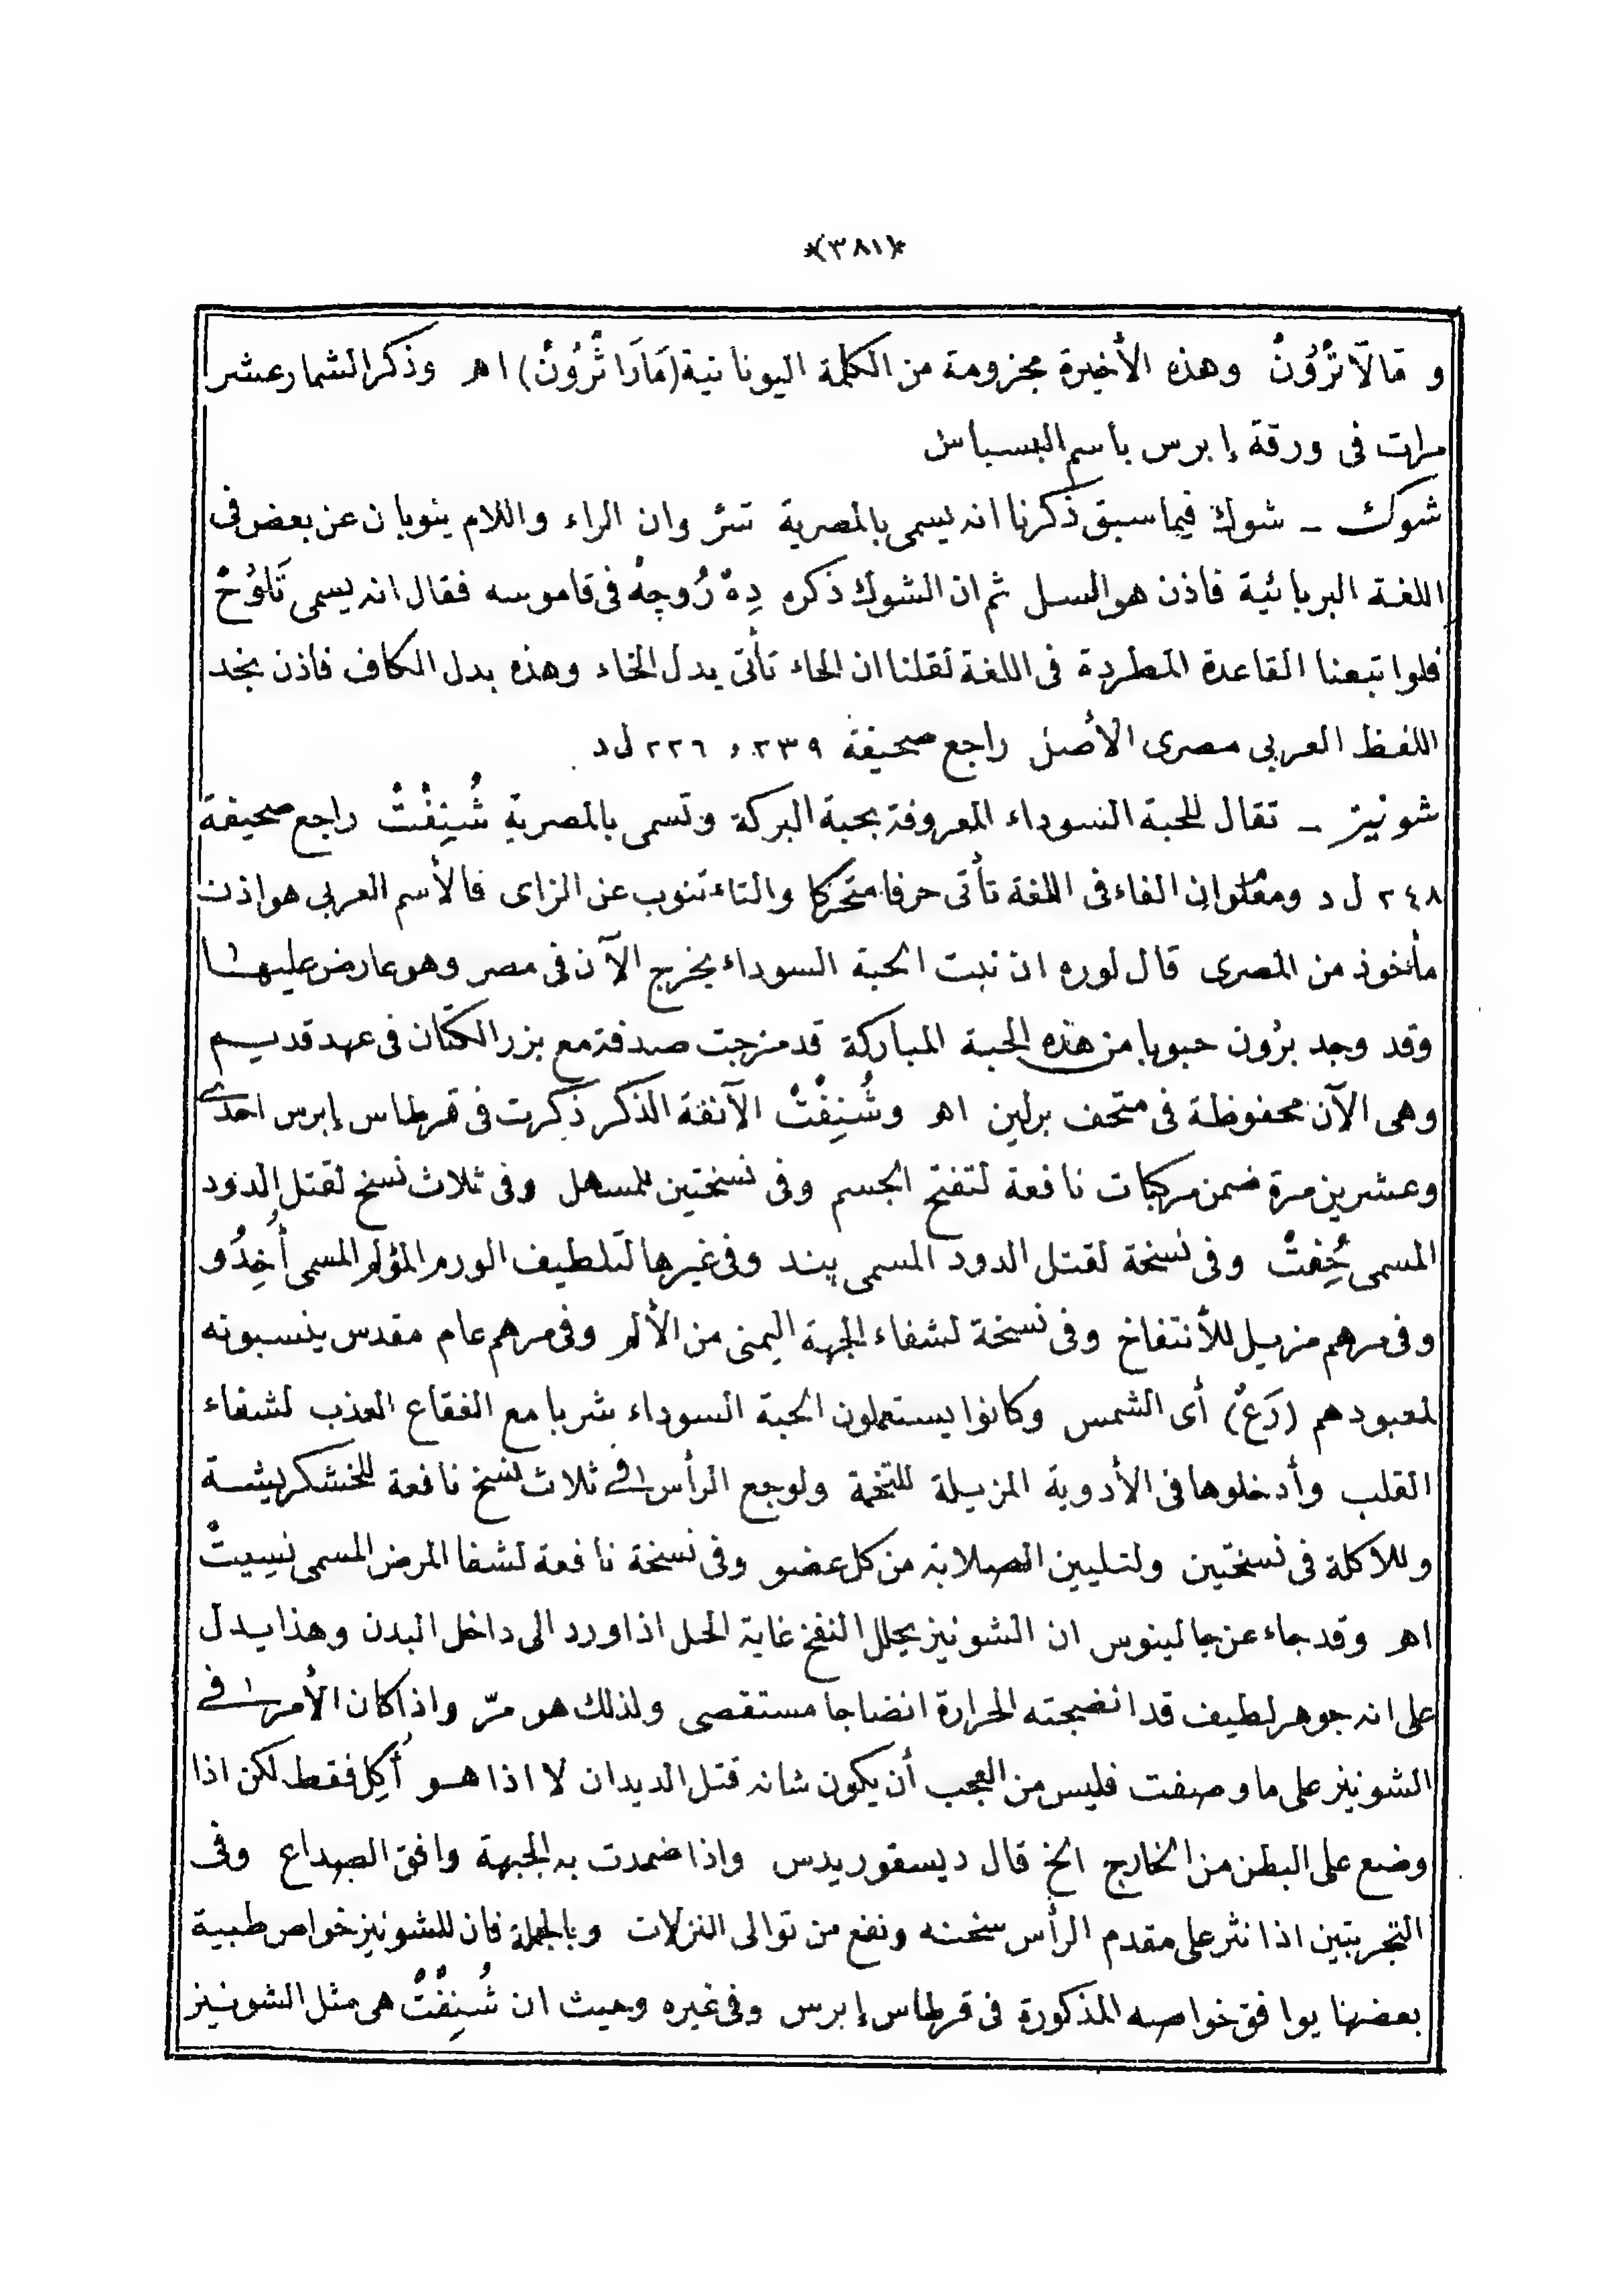 *(٣٨١)*
و مَالَاثْرُونْ وهذه الأخيرة مجزومة من الكلمة اليونانية (مَارَاثْرُونْ) اهـ وذكر الشمار عشر
مرات فى ورقة إبرس باسم البسباس
شوك ـ شوك فيما سبق ذكرنا انه يسمى بالمصرية سر وان الراء واللام ينوبان عن بعض فى
اللغة البربائية فاذن هو السل ثم ان الشوك ذكره دِهْ رُوجِهْ فى قاموسه فقال انه يسمى تَلوُحْ
فلو اتبعنا القاعدة المطردة فى اللغة لقلنا ان الحاء تأتى بدل الخاء وهذه بدل الكاف فاذن نجد
اللفظ العربى مصرى الأصل راجع صحيفة ٢٣٩ و ٢٢٦ ل د
شونيز ـ تقال للحبة السوداء المعروفة بحبة البركة وتسمى بالمصرية شُنِفْتْ راجع صحيفة
٢٤٨ ل د وان الفاء فى اللغة تأتى حرفا متحركا والتاء تنوب عن الزاى فالأسم العربى هو اذن
مأخوذ من المصرى قال لوره ان نبت الحبة السوداء يخرج الآن فى مصر وهو عارض عليها
وقد وجد برُون حبوبا من هذه الحبة المباركة قد مزجت صدفة مع بزر الكتان فى عهد قديم
وهى الآن محفوظة فى متحف برلين اهـ وشُنِفْتْ الآنفة الذكر ذكرت فى قرطاس إبرس احدى
وعشرين مرة ضمن مركبات نافعة لتفتح الجسم وفى نسختين للمسهل وفى ثلاث نسخ لقتل الدود
المسمى حُِفتْ وفى نسخة لقتل الدود المسمى پند وفى غيرها لتلطيف الورم المؤلم المسمى أُخِدُو
وفى مرهم مزيل للأنتفاخ وفى نسخة لشفاء الجهة اليمنى من الألم وفى مرهم عام مقدس ينسبونه
لمعبودهم (رَعْ) أى الشمس وكانوا يستعملون الحبة السوداء شربا مع الفقاع العذب لشفاء
القلب وأدخلوها فى الأدوية المزيلة للتخمة ولوجع الرأس فى ثلاث نسخ نافعة للخشكريشة
وللأكلة فى نسختين ولتليين الصلابة من كل عضو وفى نسخة نافعة لشفا المرض المسمى نسِيتْ
اهـ وقد جاء عن جالينوس ان الشونيز يحلل النفخ غاية الحل اذا ورد الى داخل البدن وهذا يدل
على انه جوهر لطيف قد انضجته الحرارة انضاجا مستقصى ولذلك هو مرّ واذا كان الأمر فى
الشونيز على ما وصفت فليس من العجب أن يكون شانه قتل الديدان لا اذا هو أُكِل فقط لكن اذا
وضع على البطن من الخارج الخ قال ديسقوريدس واذا ضمدت به الجبهة وافق الصداع وفى
التجربتين اذا نثر على مقدم الرأس سخنه ونفع من توالى النزلات وبالجملة فان للشونيز خواص طبية
بعضها يوافق خواصه المذكورة فى قرطاس إبرس وفى غيره وحيث ان شُنِفْتْ هى مثل الشونيز